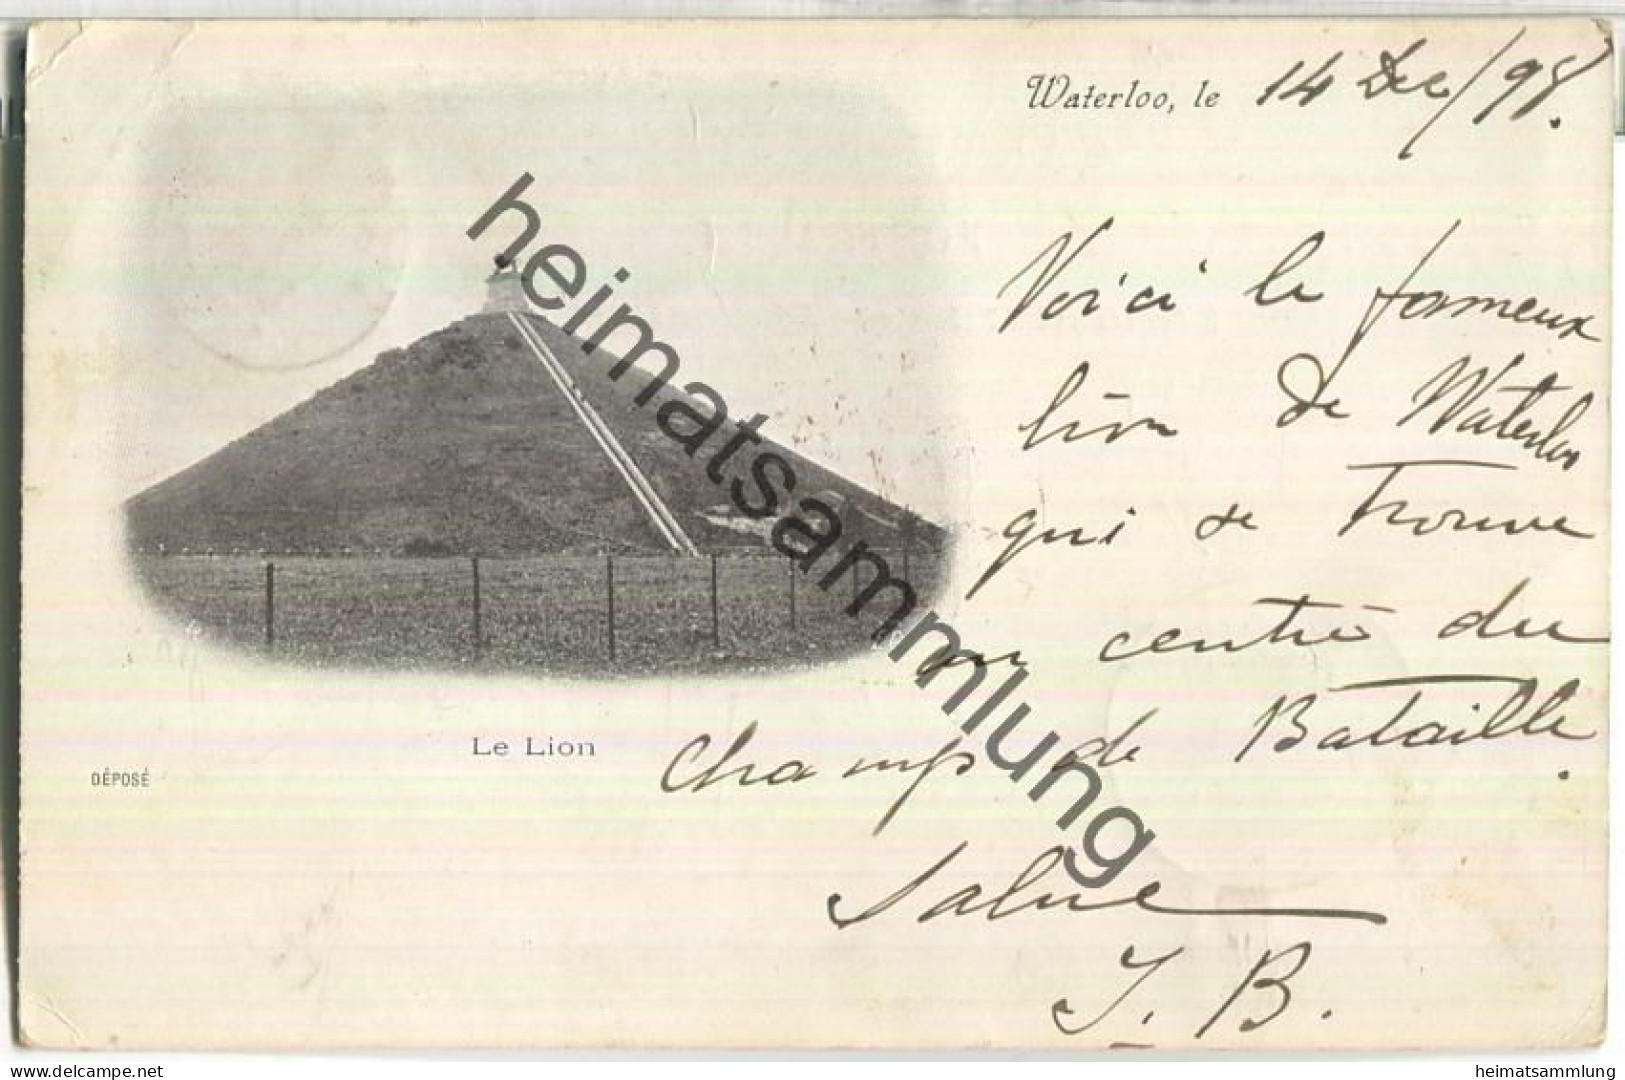 Waterloo, le 14 Dec/98.
Voici le fameux
lion de Waterloo
qui se trouve
au centre du
champ de Bataille.
Salue
J. B.
Le Lion
DÉPOSÉ
heimatsammlung
delcampe.net
heimatsammlung